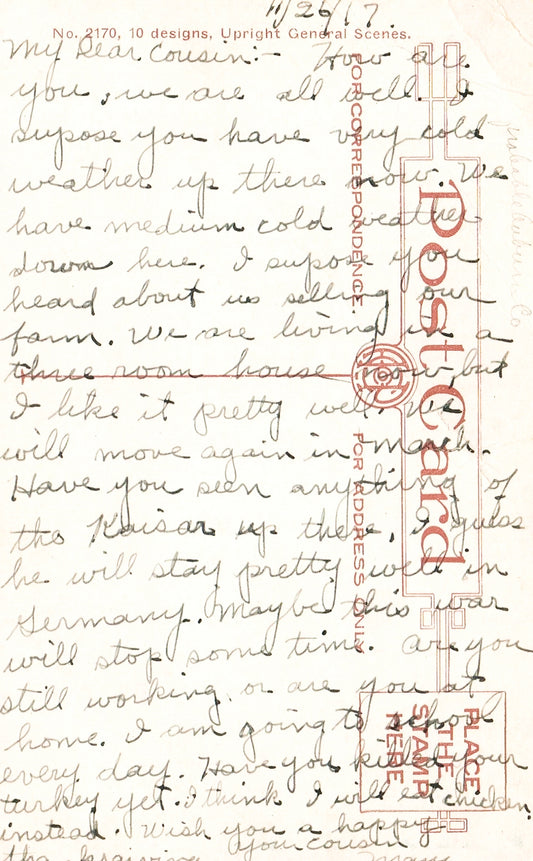 11/26/17.
No. 2170, 10 designs, Upright General Scenes.
My Dear Cousin:- How are
you, we are all well. I
supose you have very cold
weather up there now. We
have medium cold weather
down here. I supose you
heard about us selling our
farm. We are living in a
three room house now, but
I like it pretty well. We
will move again in March.
Have you seen anything of
the Kaisar up there, I guess
he will stay pretty well in
Germany. Maybe this war
will stop some time. Are you
still working or are you at
home. I am going to school
every day. Have you killed your
turkey yet. I think I will eat chicken
instead. Wish you a happy
thanksgiving your cousin
Mary
FOR CORRESPONDENCE
FOR ADDRESS ONLY
Post Card
PLACE
THE
STAMP
HERE
Co